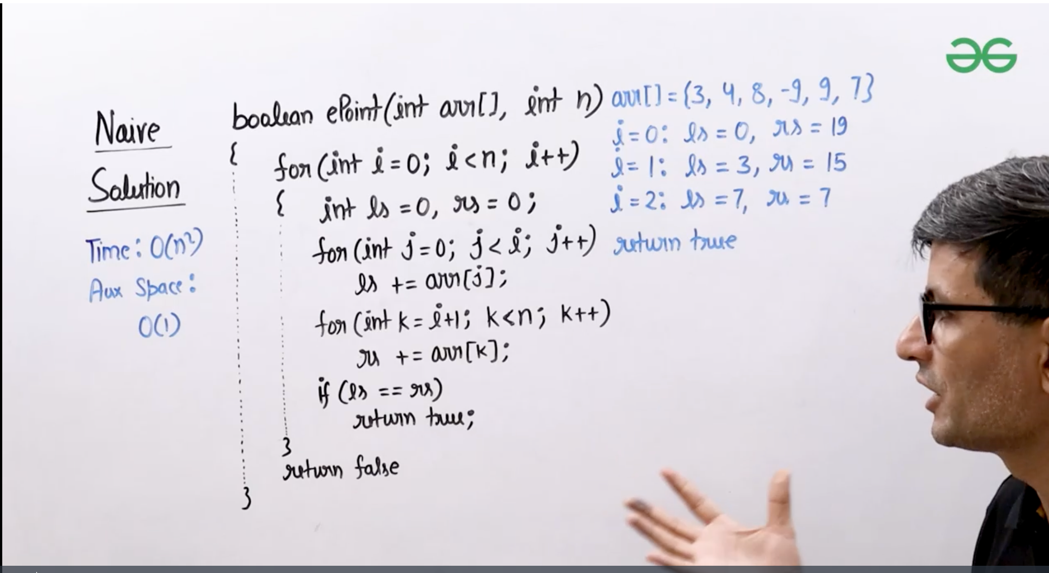 Naive
Solution
Time: O(n²)
Aux Space:
O(1)
boolean ePoint(int arr[], int n)
{
for(int i=0; i<n; i++)
{ int ls =0, rs =0;
for(int j=0; j<i; j++)
ls += arr[j];
for(int k=i+1; k<n; k++)
rs += arr[k];
if (ls == rs)
return true;
}
return false
}
arr[] = {3, 4, 8, -9, 9, 7}
i=0: ls =0, rs =19
i=1: ls =3, rs =15
i=2: ls =7, rs =7
return true